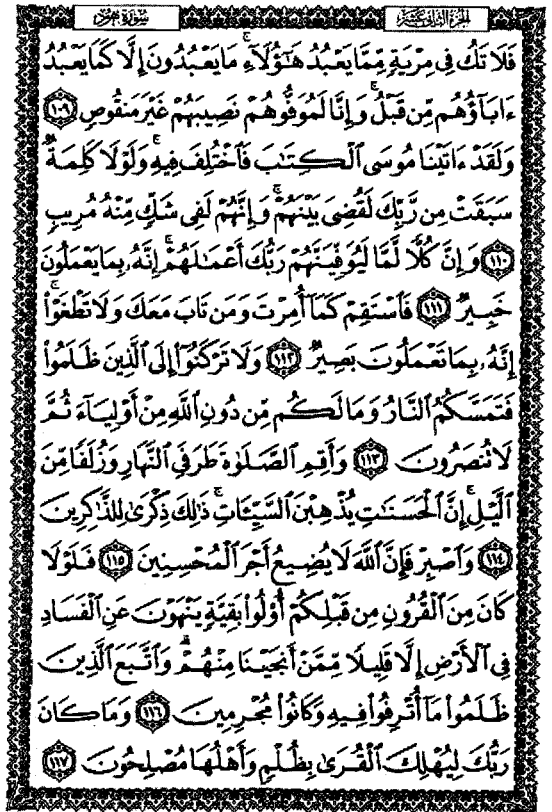 الجزء الثاني عشر
سورة هود
فَلَا تَكُ فِى مِرْيَةٍ مِّمَّا يَعْبُدُ هَٰٓؤُلَآءِ ۚ مَا يَعْبُدُونَ إِلَّا كَمَا يَعْبُدُ
ءَابَآؤُهُم مِّن قَبْلُ ۚ وَإِنَّا لَمُوَفُّوهُمْ نَصِيبَهُمْ غَيْرَ مَنقُوصٍ ۝١٠٩
وَلَقَدْ ءَاتَيْنَا مُوسَى ٱلْكِتَٰبَ فَٱخْتُلِفَ فِيهِ ۚ وَلَوْلَا كَلِمَةٌ
سَبَقَتْ مِن رَّبِّكَ لَقُضِىَ بَيْنَهُمْ ۚ وَإِنَّهُمْ لَفِى شَكٍّ مِّنْهُ مُرِيبٍ
۝١١٠ وَإِنَّ كُلًّا لَّمَّا لَيُوَفِّيَنَّهُمْ رَبُّكَ أَعْمَٰلَهُمْ ۚ إِنَّهُۥ بِمَا يَعْمَلُونَ
خَبِيرٌ ۝١١١ فَٱسْتَقِمْ كَمَآ أُمِرْتَ وَمَن تَابَ مَعَكَ وَلَا تَطْغَوْا۟ ۚ
إِنَّهُۥ بِمَا تَعْمَلُونَ بَصِيرٌ ۝١١٢ وَلَا تَرْكَنُوٓا۟ إِلَى ٱلَّذِينَ ظَلَمُوا۟
فَتَمَسَّكُمُ ٱلنَّارُ وَمَا لَكُم مِّن دُونِ ٱللَّهِ مِنْ أَوْلِيَآءَ ثُمَّ
لَا تُنصَرُونَ ۝١١٣ وَأَقِمِ ٱلصَّلَوٰةَ طَرَفَىِ ٱلنَّهَارِ وَزُلَفًا مِّنَ
ٱلَّيْلِ ۚ إِنَّ ٱلْحَسَنَٰتِ يُذْهِبْنَ ٱلسَّيِّـَٔاتِ ۚ ذَٰلِكَ ذِكْرَىٰ لِلذَّٰكِرِينَ
۝١١٤ وَٱصْبِرْ فَإِنَّ ٱللَّهَ لَا يُضِيعُ أَجْرَ ٱلْمُحْسِنِينَ ۝١١٥ فَلَوْلَا
كَانَ مِنَ ٱلْقُرُونِ مِن قَبْلِكُمْ أُو۟لُوا۟ بَقِيَّةٍ يَنْهَوْنَ عَنِ ٱلْفَسَادِ
فِى ٱلْأَرْضِ إِلَّا قَلِيلًا مِّمَّنْ أَنجَيْنَا مِنْهُمْ ۗ وَٱتَّبَعَ ٱلَّذِينَ
ظَلَمُوا۟ مَآ أُتْرِفُوا۟ فِيهِ وَكَانُوا۟ مُجْرِمِينَ ۝١١٦ وَمَا كَانَ
رَبُّكَ لِيُهْلِكَ ٱلْقُرَىٰ بِظُلْمٍ وَأَهْلُهَا مُصْلِحُونَ ۝١١٧